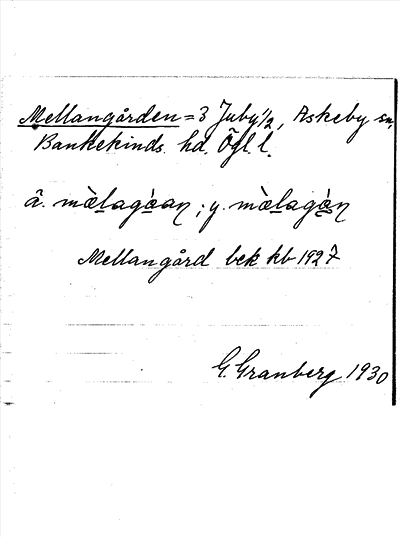 Mellangården = 3 Juby 1/2, Askeby sn,
Bankekinds hd. Ögl. l.
ä. mä̀lagɑ́an ; y. mä̀lagɑ́n
Mellangård bek kb 1927
G. Granberg 1930